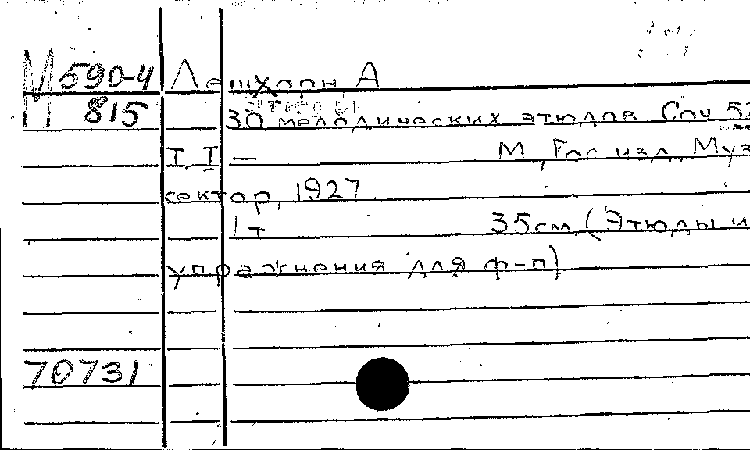 М 590-4 Лешхорн, А
М 815
30 мелодических этюдов Соч 52
Т. I — М, Гос изд. Муз
сектор, 1927
1 т 35см (Этюды и
упражнения для ф-п)
70731